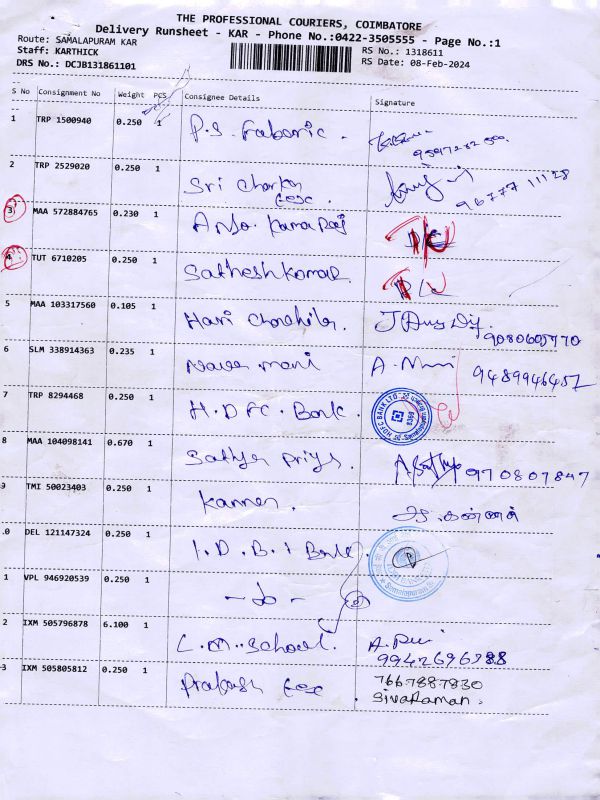 THE PROFESSIONAL COURIERS, COIMBATORE
Delivery Runsheet - KAR - Phone No.:0422-3505555 - Page No.:1
Route: SAMALAPURAM KAR
RS No.: 1318611
Staff: KARTHICK
RS Date: 08-Feb-2024
DRS No.: DCJB131861101
S No Consignment No Weight PCS Consignee Details Signature
1 TRP 1500940 0.250 1 P.S. Faboric.
2 TRP 2529020 0.250 1 Sri
96777 11128
3 MAA 572884765 0.230 1
4 TUT 6710205 0.250 1 Satheshkumar
5 MAA 103317560 0.105 1 Hari
9080605770
6 SLM 338914363 0.235 1 Naveen mani A. Mani
9489946452
7 TRP 8294468 0.250 1 H.D.F.C. Bank. HDFC BANK LTD.
8 MAA 104098141 0.670 1 Sathya Priya. 970807847
9 TMI 50023403 0.250 1 Kannen. கண்ணன்
.0 DEL 121147324 0.250 1 I.D.B.I Bank.
1 VPL 946920539 0.250 1 - do -
2 IXM 505796878 6.100 1 L.M. School.
9942696388
3 IXM 505805812 0.250 1 Prakash tex 7667887830
SivaRaman.